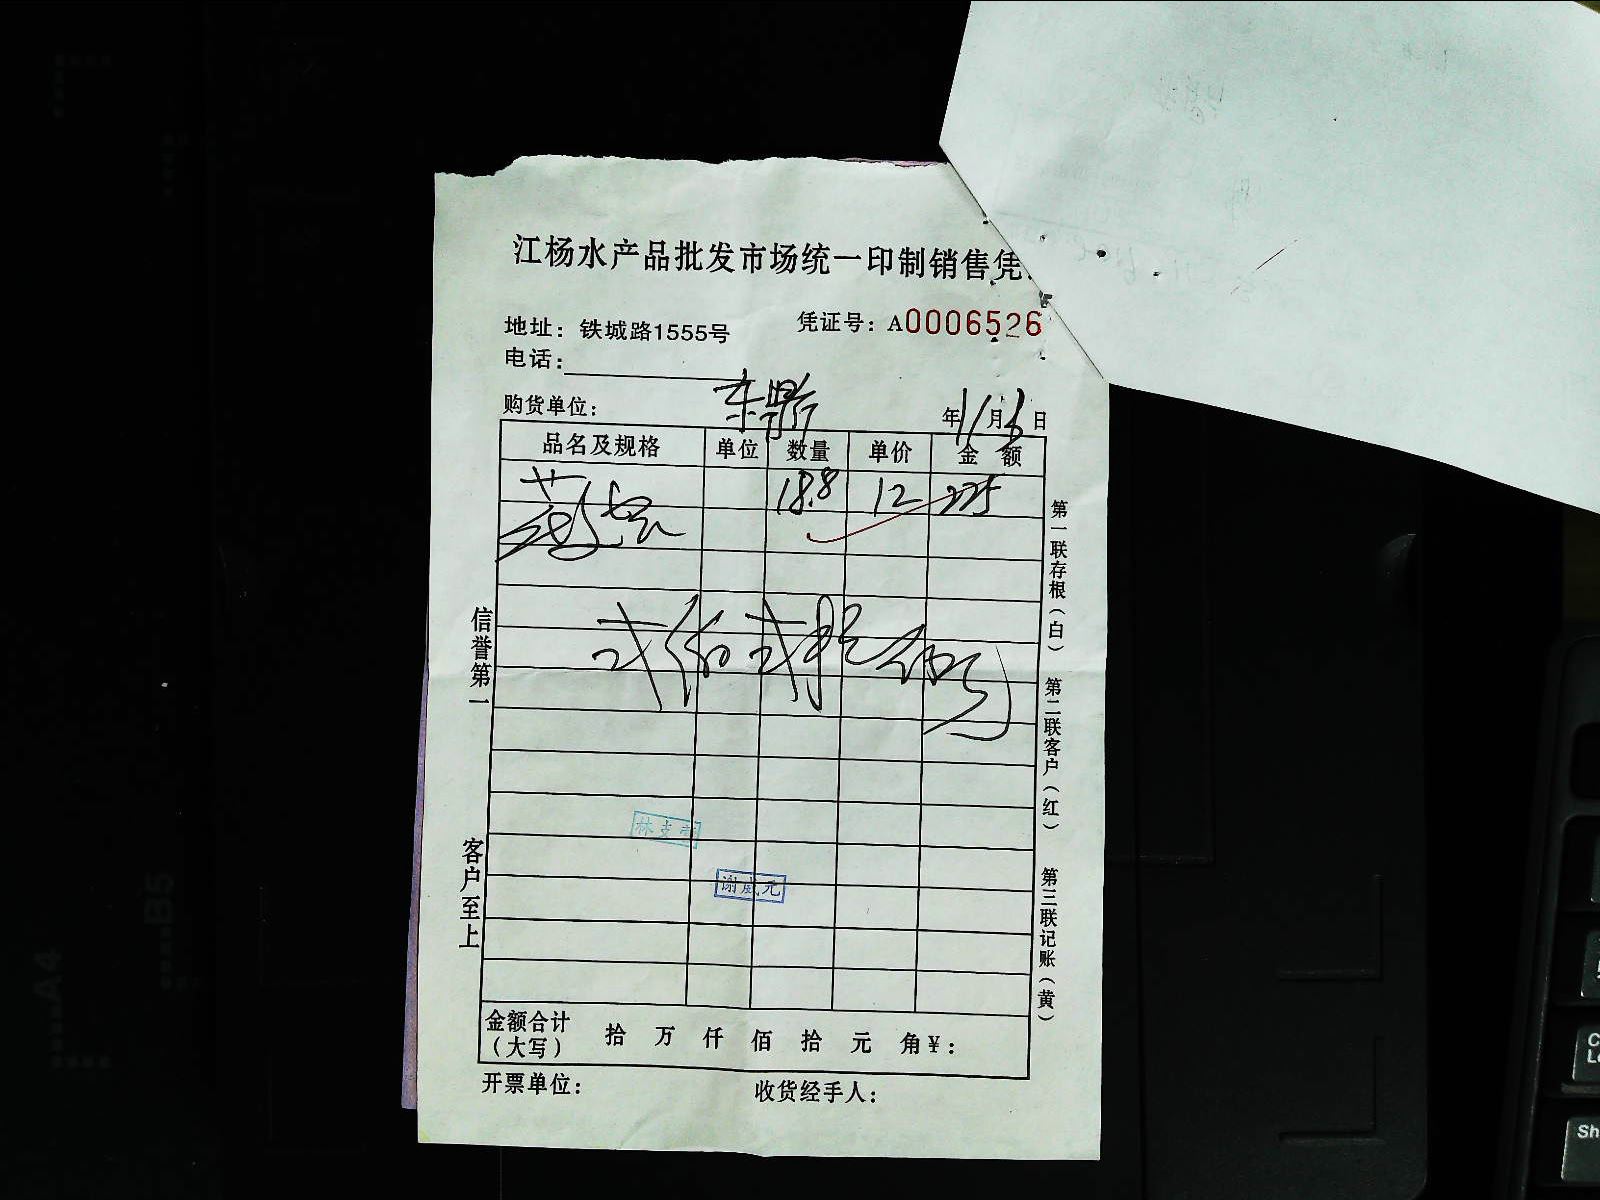 江杨水产品批发市场统一印制销售凭
地址：铁城路1555号
凭证号：A0006526
电话：
购货单位：东
年11月6日
品名及规格 单位 数量 单价 金额
18.8 12 225
式佰式拾伍
信誉第一
客户至上
第一联存根（白）
第二联客户（红）
第三联记账（黄）
谢成元
金额合计（大写） 拾 万 仟 佰 拾 元 角 ¥：
开票单位：
收货经手人：